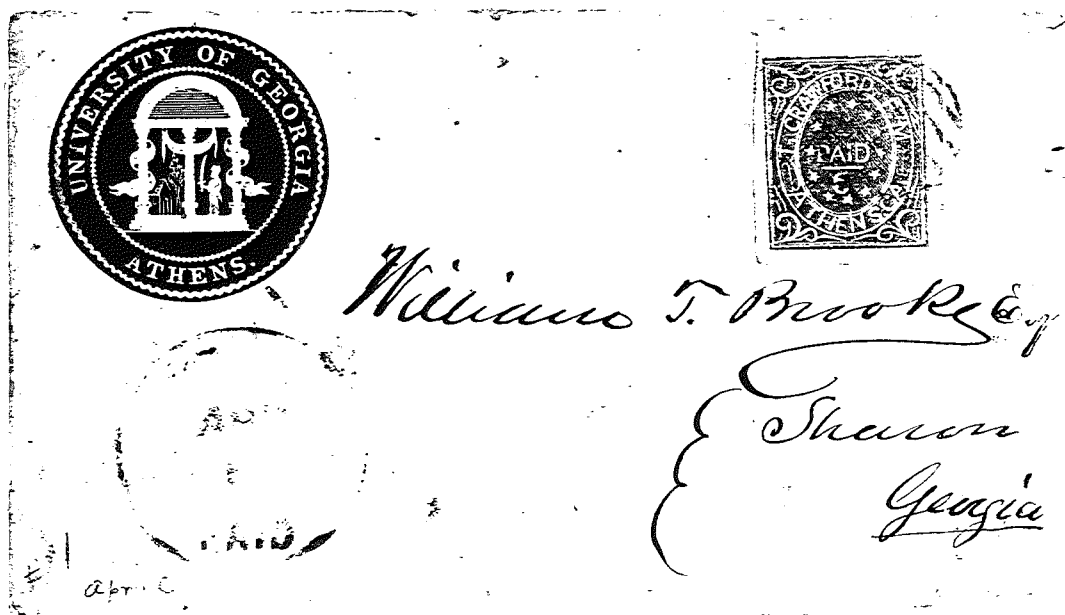 UNIVERSITY OF GEORGIA
ATHENS.
T. CRAWFORD P.M.
PAID
5
ATHENS GA
William T. Brooks Esq
Sharon
Georgia
PAID
Apr.